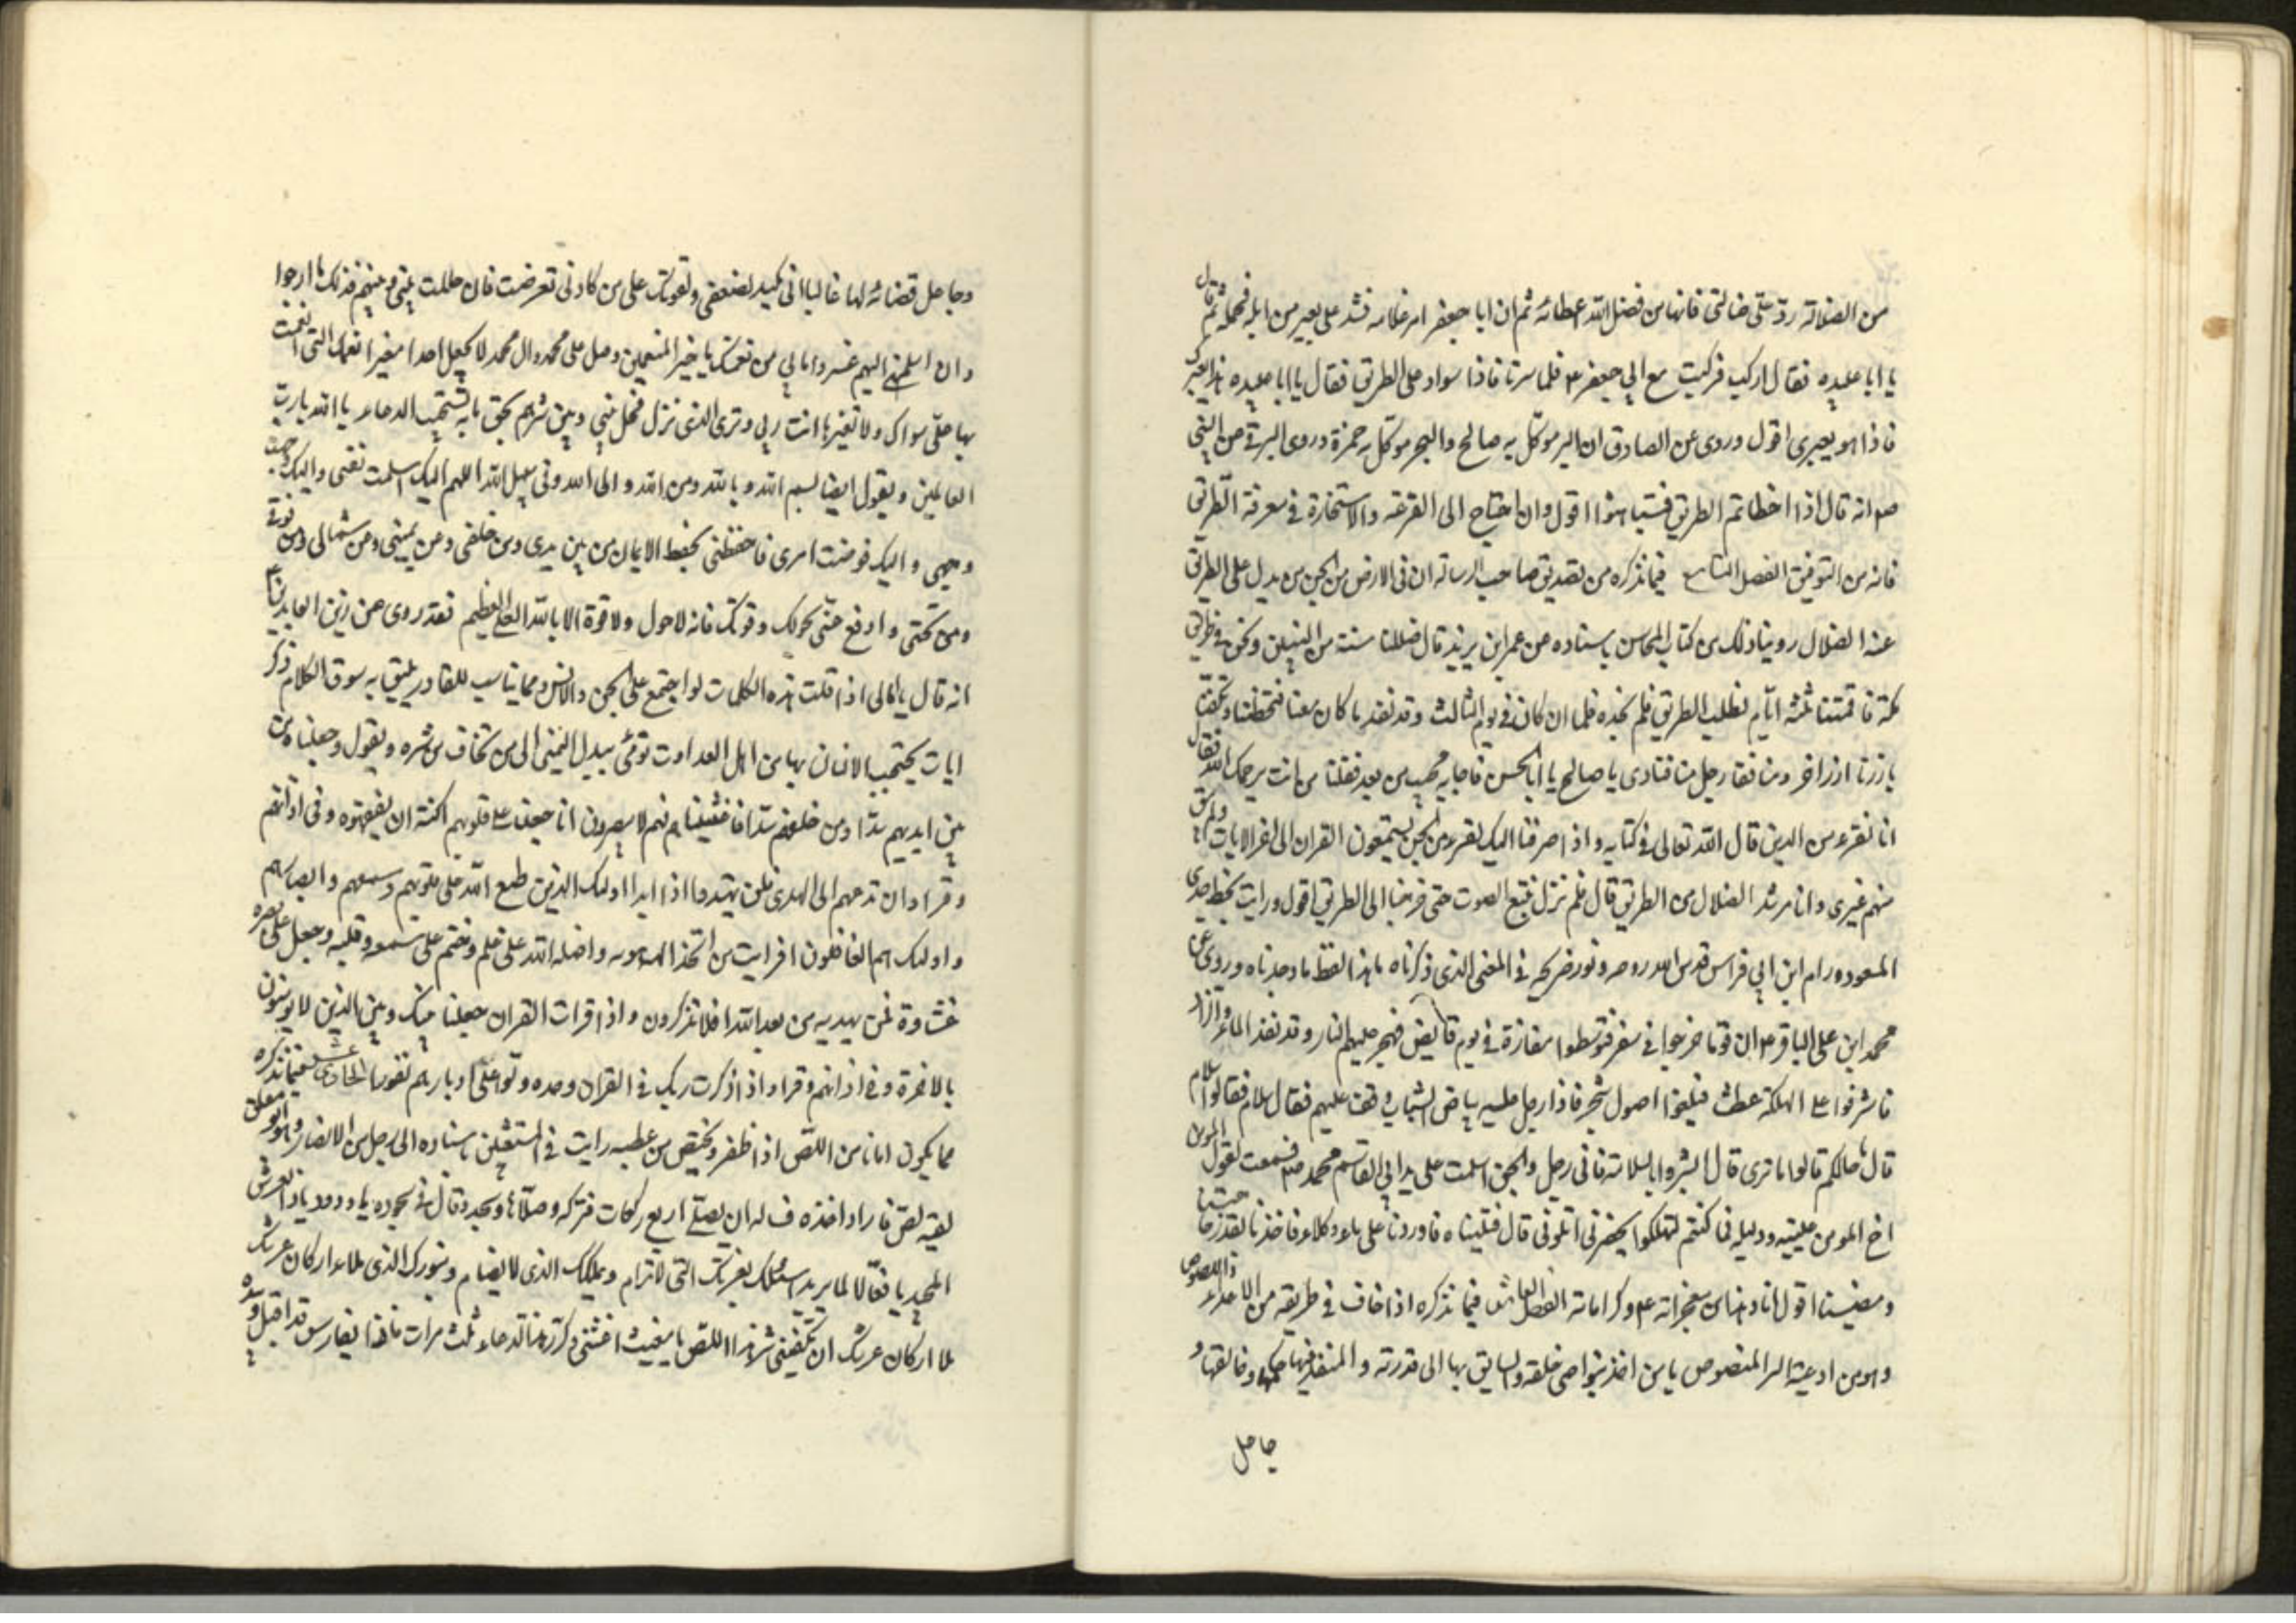 من الضلالة ردّ علىّ ضالتى فانها من فضل الله عطائه ثم ان ابا جعفر امر غلامه فشد على بعير من ابله فحمله ثم قال
يا ابا عبيده فقال اركب فركبت مع ابي جعفر ع فلما سرنا فاذا سواد على الطريق فقال يا ابا عبيده هذا بعيرك
فاذا هو بعيرى اقول وروى عن الصادق ان البر موكّل به صالح والبحر موكّل به حمزة وروى البرقى عن النبى
صم انه قال اذا اخطاتم الطريق فتيامنوا اقول وان احتاج الى القرعة والاستخارة فى معرفة الطريق
فانه من التوفيق الفصل التاسع فيما نذكره من تصديق صاحب الرسالة ان فى الارض من الجن من يدل على الطريق
عند الضلال روينا ذلك من كتاب المحاسن باسناده عن عمر ابن يزيد قال ضللنا سنت من السنين ونحن فى طريق
مكة فاقمنا ثلثة ايّام نطلب الطريق فلم نجده فلما ان كان فى يوم الثالث وقد نفد ما كان معنا فتحنطنا وتكفنا
بازرنا ازر احر ومنا فقام رجل منا فنادى يا صالح يا ابا الحسن فاجابه مجيب من بعد فقلنا من انت يرحمك الله فقال
انا نفر من الذين قال الله تعالى فى كتابه واذ صرفنا اليك نفر من الجن يستمعون القران الى اخر الايات ولم يبق
منهم غيرى وانا مرشد الضلال من الطريق قال فلم نزل نتبع الصوت حتى خرجنا الى الطريق اقول ورايت بخط جدى
المسعود ورام ابن ابي فراس قدس الله روحه ونور ضريحه فى المعنى الذى ذكرناه ما هذا لفظه ما وجدناه وروى عن
محمد ابن على الباقر ع ان قوما خرجوا فى سفر فتوسطوا مفازة فى يوم قايض فهجر عليهم النار وقد نفذ الماء والزاد
فاشرفوا على الهلكة عطشا فبلغوا اصول شجر فاذا رجل عليه بياض الثياب وقف عليهم فقال سلام فقالوا سلام
قال ما حالكم قالوا ما ترى قال ابشروا بالسلامة فانى رجل من الجن اسلمت على يد ابي القاسم محمد صم فسمعت يقول المومن
اخ المومن عينه ودليله فما كنتم لتهلكوا بحضرتى اتلونى قال فتليناه فاوردنا على ماء وكلاء فاخذنا لقدر حاجتنا
ومضينا اقول انا وهذا من معجزاته ع وكراماته الفصل العاشر فيما نذكره اذا خاف فى طريقه من الاعداء واللصوص
وهو من ادعية السر المنصوص يا من اخذ بنواصى خلقه والسابق بها الى قدرته والمنفذ فيها حكمه وخالقها و
جاعل
وجاعل قضائه لها غالبا انى مكيد لضعفى ولقوتك على من كادنى تعرضت فان حللت بينى وبينهم فذلك ما ارجوا
وان اسلمتنى اليهم غيروا ما بي من نعمتك يا خير المنعمين وصل على محمد وال محمد لا تجعل احدا مغيرا نعمك التى انعمت
بها علىّ سواك ولا تغيرها انت ربي وترى الذى نزل فحل بينى وبين شرهم بحق ما به تستجيب الدعاء يا الله يا ربّ
العالمين ويقول ايضا بسم الله وبالله ومن الله والى الله وفى سبيل الله اللهم اليك اسلمت نفسى واليك وجهت
وجهى واليك فوضت امرى فاحفظنى بحفظ الايمان من بين يدى ومن خلفى ومن يمينى ومن شمالى ومن فوقى
ومن تحتى وادفع عنّى بحولك وقوتك فانه لاحول ولا قوة الا بالله العلى العظيم فقد روى عن زين العابدين ع
انه قال ما ابالى اذا قلت هذه الكلمات لو اجتمع على الجن والانس ومما يناسب للقادر يليق به سوق الكلام ذكر
ايات يحتجب الانسان بها من اهل العداوت تومى بيدك اليمنى الى من تخاف من شره ويقول وجعلنا من
بين ايديهم سدا ومن خلفهم سدا فاغشيناهم فهم لا يبصرون انا جعلنا على قلوبهم اكنة ان يفقهوه وفى اذانهم
وقرا وان تدعهم الى الهدى فلن يهتدوا اذا ابدا اولئك الذين طبع الله على قلوبهم وسمعهم وابصارهم
واولئك هم الغافلون افرايت من اتخذ الهه هويه واضله الله على علم وختم على سمعه وقلبه وجعل على بصره
غشاوة فمن يهديه من بعد الله افلا تذكرون واذا قرات القران جعلنا بينك وبين الذين لا يومنون
بالاخرة وفى اذانهم وقرا واذا ذكرت ربك فى القران وحده ولّوا على ادبارهم نفورا الحادى عشر فيما نذكره
مما يكون امانا من اللص اذا ظفر ويخلص من عطبه رايت فى المستغيثين باسناده الى رجل من الانصار وابو معلق
لقيه لصّ فاراد اخذه فساله ان يصلّى اربع ركعات فتركه وصلّاها وسجد وقال فى سجوده يا ودود يا ذا العرش
المجيد يا فعّالا لما يريد اسئلك بعزتك التى لا ترام وبملكك الذى لا يضام وبنورك الذى ملاء اركان عرشك
ملا اركان عرشك ان تكفينى شر هذا اللص يا مغيث اغثنى وكرر هذا الدعاء ثلث مرات فاذا بفارس قد اقبل وبيده